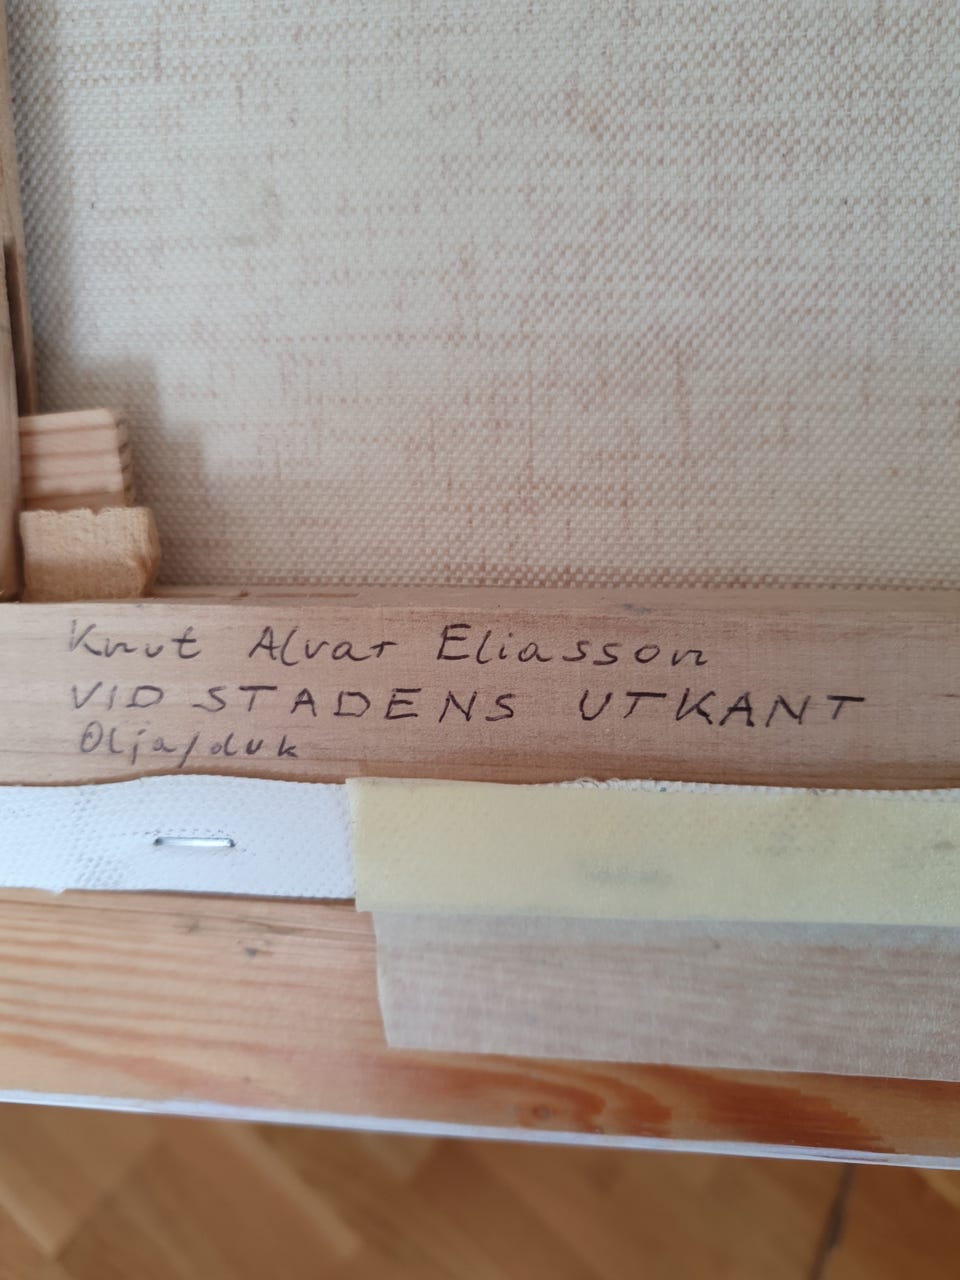 Knut Alvar Eliasson
VID STADENS UTKANT
Olja/duk